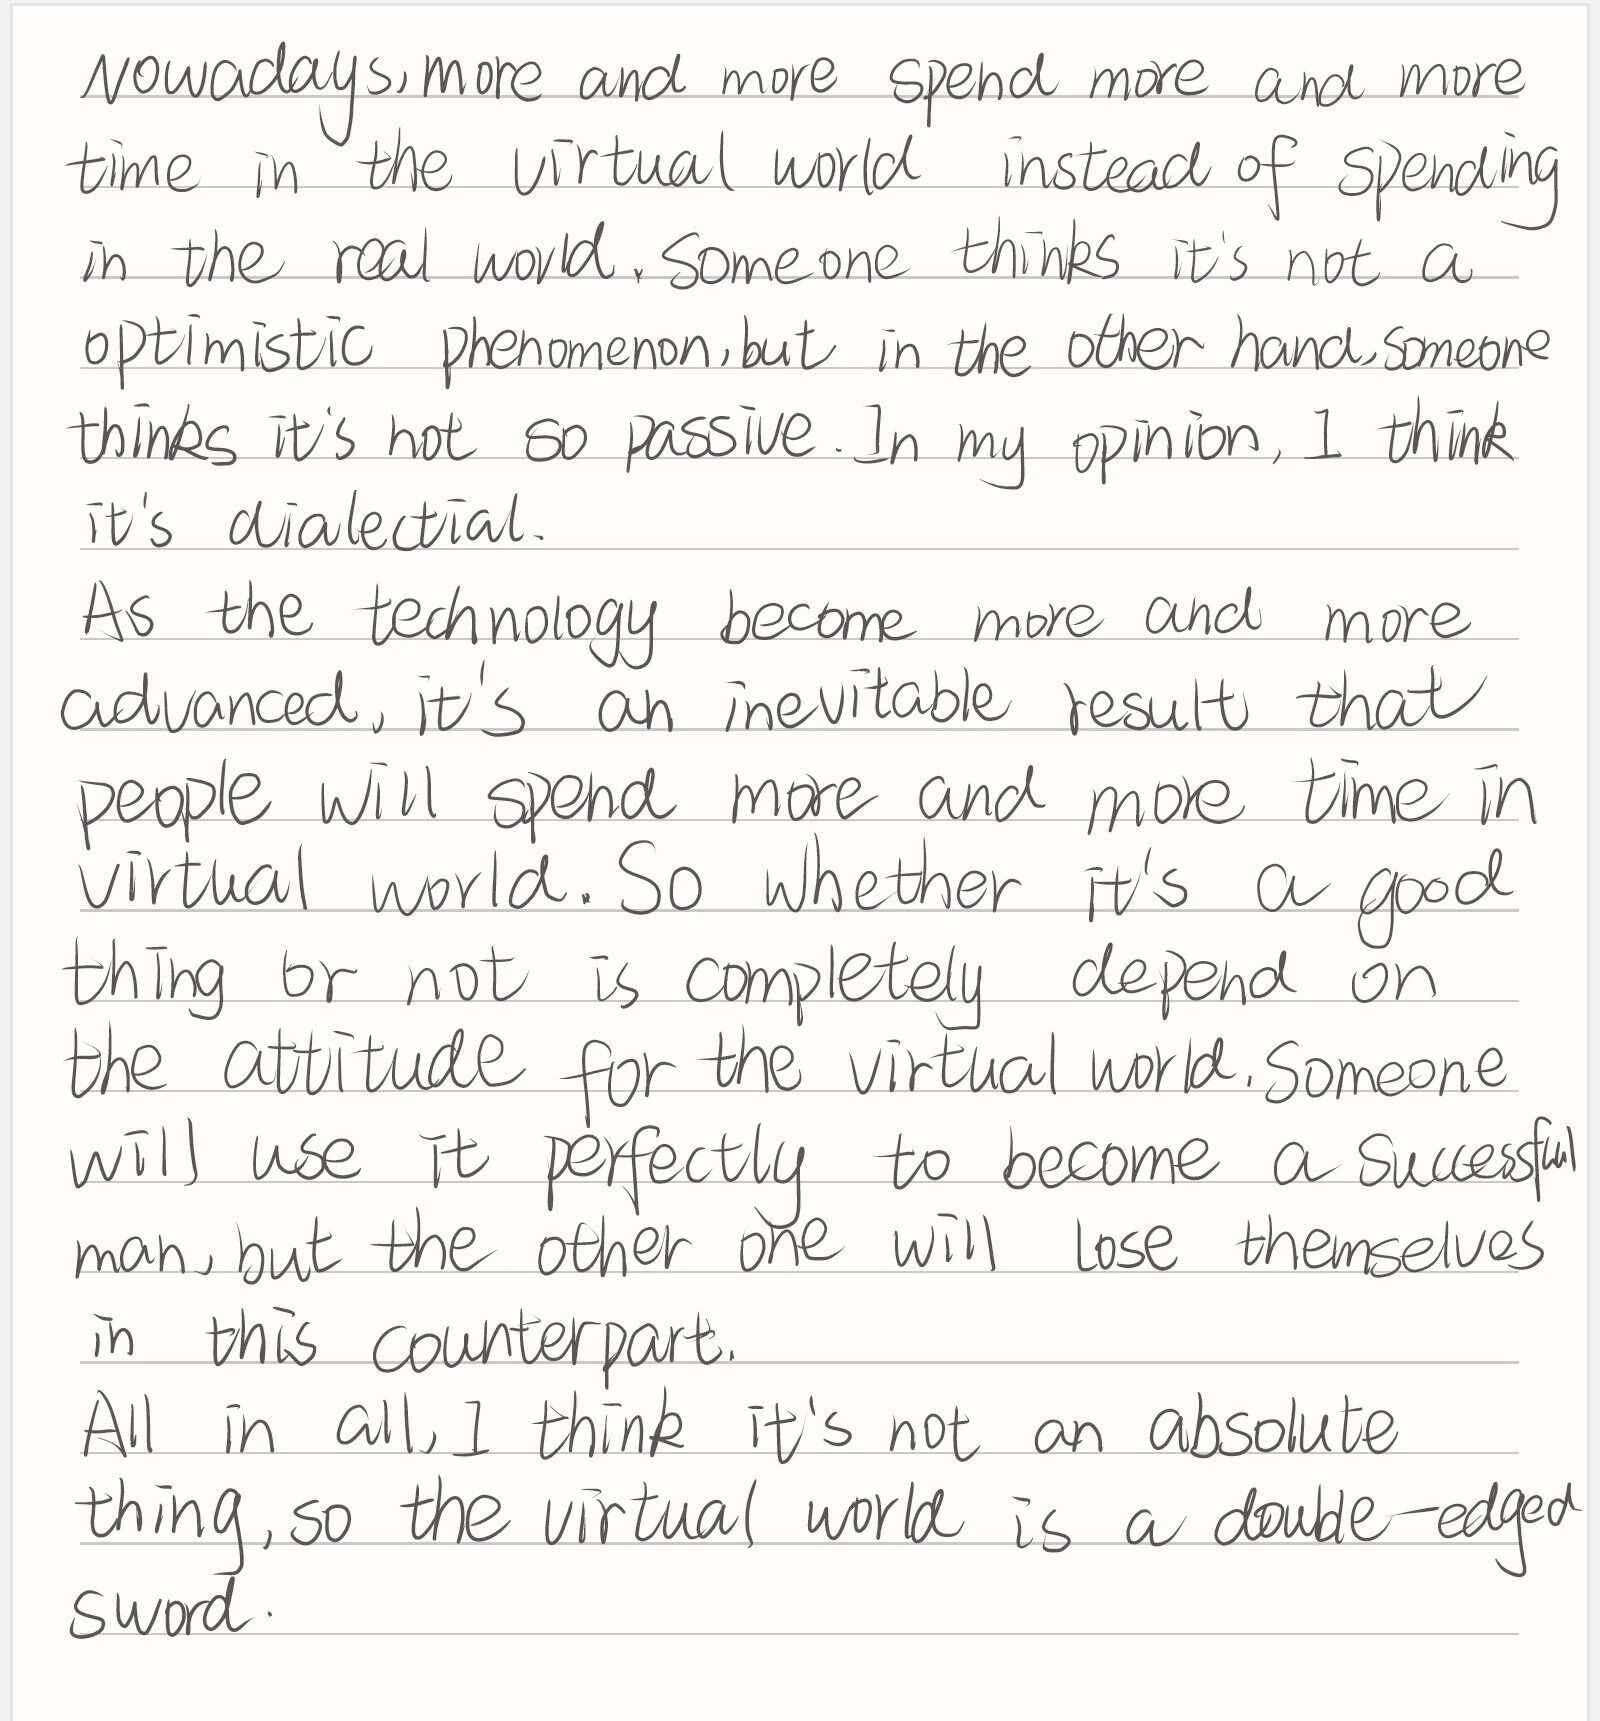 Nowadays, more and more spend more and more
time in the virtual world instead of spending
in the real world. Someone thinks it's not a
optimistic phenomenon, but in the other hand, someone
thinks it's not so passive. In my opinion, I think
it's dialectial.
As the technology become more and more
advanced, it's an inevitable result that
people will spend more and more time in
virtual world. So whether it's a good
thing or not is completely depend on
the attitude for the virtual world. Someone
will use it perfectly to become a successful
man, but the other one will lose themselves
in this counterpart.
All in all, I think it's not an absolute
thing, so the virtual world is a double-edged
sword.